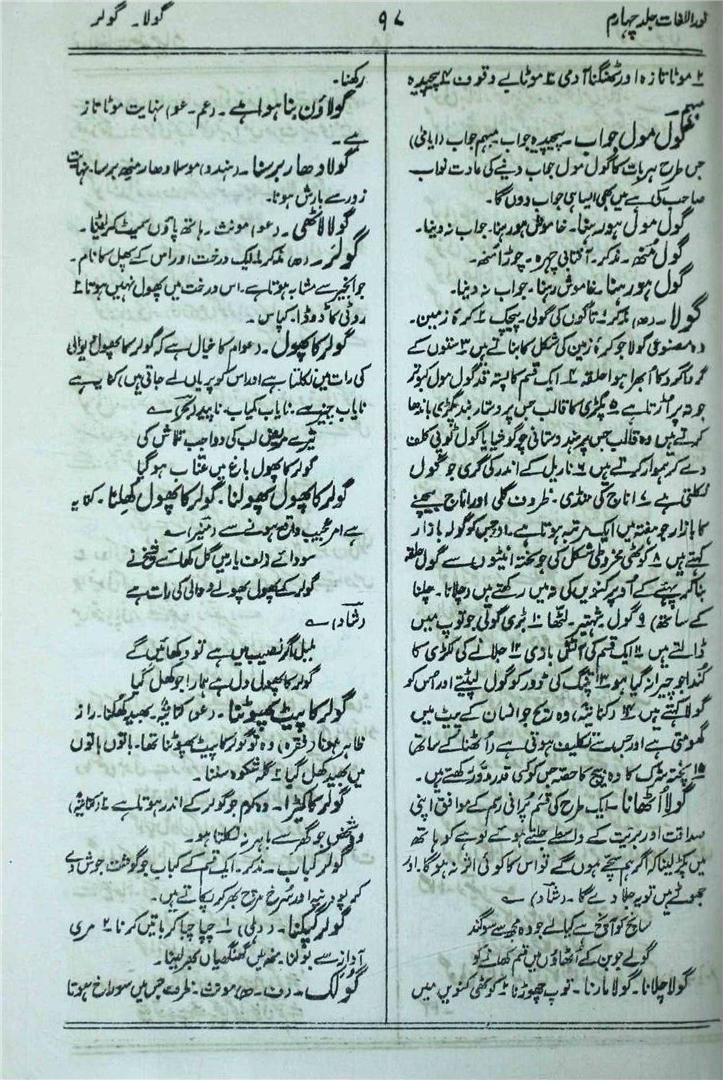 نور اللغات جلد چہارم
۹۷
گولا۔ گولر
۲ موٹا تازہ اور ٹھنگنا آدمی ۳ موٹا بے وقوف ۴ پیچیدہ
مبہم
گول مول جواب۔ پیچیدہ جواب مبہم جواب (ایامیٰ)
جس طرح ہر بات کا گول مول جواب دینے کی عادت نواب
صاحب کی ہے میں بھی ایسا ہی جواب دوں گا۔
گول مول ہو رہنا۔ خاموش ہو رہنا۔ جواب نہ دینا۔
گول منھ۔ مذکر۔ آفتابی چہرہ۔ چوڑا منھ۔
گول ہو رہنا۔ خاموش رہنا۔ جواب نہ دینا۔
گولا۔ (ھ) مذکر ۱ تاگوں کی گولی۔ پیچک ۲ کرۂ زمین۔
وہ مصنوعی گولا جو کرۂ زمین کی شکل کا بناتے ہیں ۳ ستون کے
گرداگرد کا ابھرا ہوا حلقہ ۴ ایک قسم کا پستہ قد گول مول کبوتر
جو تہ پر اڑتا ہے ۵ پگڑی کا قالب جس پر دستار بند پگڑی باندھا
کرتے ہیں وہ قالب جس پر ہندوستانی چوگوشیا یا گول ٹوپی کلف
دے کر ہموار کرتے ہیں ۶ ناریل کے اندر کی گری جو گول
نکلتی ہے ۷ اناج کی منڈی۔ ظروف گلی اور اناج بیچنے
کا بازار جو ہفتہ میں ایک مرتبہ ہوتا ہے۔ اور جس کو گولہ بازار
کہتے ہیں ۸ کوٹھی مخروطی شکل کی جو پختہ اینٹوں سے گول حلقہ
بنا کر پہئے کے اوپر کنویں کی تہ میں رکھتے ہیں (چلانا۔ چلنا
کے ساتھ) ۹ گول شہتیر۔ لٹھا ۱۰ بڑی گولی جو توپ میں
ڈالتے ہیں ۱۱ ایک قسم کی آتشی بازی ۱۲ جلانے کی لکڑی کا
کندا جو چیرا نہ گیا ہو ۱۳ پتنگ کی ڈور کو گول لپیٹتے اور اس کو
گولا کہتے ہیں ۱۴ (کنایۃً) وہ ریح جو انسان کے پیٹ میں
گھومتی ہے اور جس سے تکلیف ہوتی ہے (اٹھنا کے ساتھ)
۱۵ پختہ سڑک کا وہ بیچ کا حصہ جس کو کسی قدر مدور رکھتے ہیں۔
گولا اُٹھانا۔ ایک طرح کی قسم پرانی رسم کے موافق اپنی
صداقت اور بریت کے واسطے جلتے ہوئے لوہے کو ہاتھ
میں پکڑ لینا کہ اگر ہم سچے ہوں گے تو اس کا کوئی اثر نہ ہوگا۔ اور
جھوٹے ہیں تو یہ جلا دے گا۔ (رشاد) ؎
سانچ کو آنچ ہے کیا لے جو وہ مجھ سے سوگند
گولے جوبن کے اٹھاؤں میں قسم کھانے کو
گولا چلانا۔ گولا مارنا۔ توپ چھوڑنا ۲ کوٹھی کنویں میں
رکھنا۔
گولاؤن بنا ہوا ہے۔ (عم۔ عو) نہایت موٹا تازہ
ہے۔
گولا دھار برسنا۔ (ہندو) موسلا دھار منھ برسنا۔ نہایت
زور سے بارش ہونا۔
گولا لاٹھی۔ (عو) مونث۔ ہاتھ پاؤں سمیٹ کر لیٹنا۔
گولر۔ (ھ) مذکر ۱ ایک درخت اور اس کے پھل کا نام۔
جو انجیر سے مشابہ ہوتا ہے۔ اس درخت میں پھول نہیں ہوتا ۲
روئی کا ڈوڈا۔ کپاس۔
گولر کا پھول۔ (عوام کا خیال ہے کہ گولر کا پھول دیوالی
کی رات میں نکلتا ہے اور اس کو پریاں لے جاتی ہیں) کنایہ ہے
نایاب چیز سے۔ نایاب کمیاب۔ ناپید (بحر) ؎
تیرے مریض لب کی دوا جب تلاش کی
گولر کا پھول باغ میں عناب ہو گیا
گولر کا پھول پھولنا۔ گولر کا پھول کھلنا۔ کنایہ
ہے امر عجیب واقع ہونے سے (منیر) ؎
سودائے زلف یار میں گل کھائے شیخ نے
گولر کے پھول پھولے دوالی کی رات ہے
(رشاد) ؎
بلبل اگر نصیب میں ہے تو دکھائیں گے
گولر کا پھول دل ہے ہمارا جو کھل گیا
گولر کا پیٹ پھوٹنا۔ (عو) کنایۃً۔ بھید کھلنا۔ راز
ظاہر ہونا (فقرہ) وہ تو گولر کا پیٹ پھوٹنا تھا۔ باتوں باتوں
میں بھید کھل گیا ۲ گلہ شکوہ سننا۔
گولر کا کیڑا۔ وہ کرم جو گولر کے اندر ہوتا ہے ۲ (کنایۃً)
وہ شخص جو گھر سے باہر نہ نکلتا ہو۔
گولر کباب۔ مذکر۔ ایک قسم کے کباب جو گوشت جوش دے
کر پودینہ اور سرخ مرچ بھر کر پکاتے ہیں۔
گولر پکنا۔ (دہلی) ۱ چبا چبا کر باتیں کرنا ۲ مری
آواز سے بولنا۔ منھ میں گھنگھنیاں بھر لینا۔
گولک۔ (ف۔ ھ) مونث۔ ظرف جس میں سوراخ ہوتا